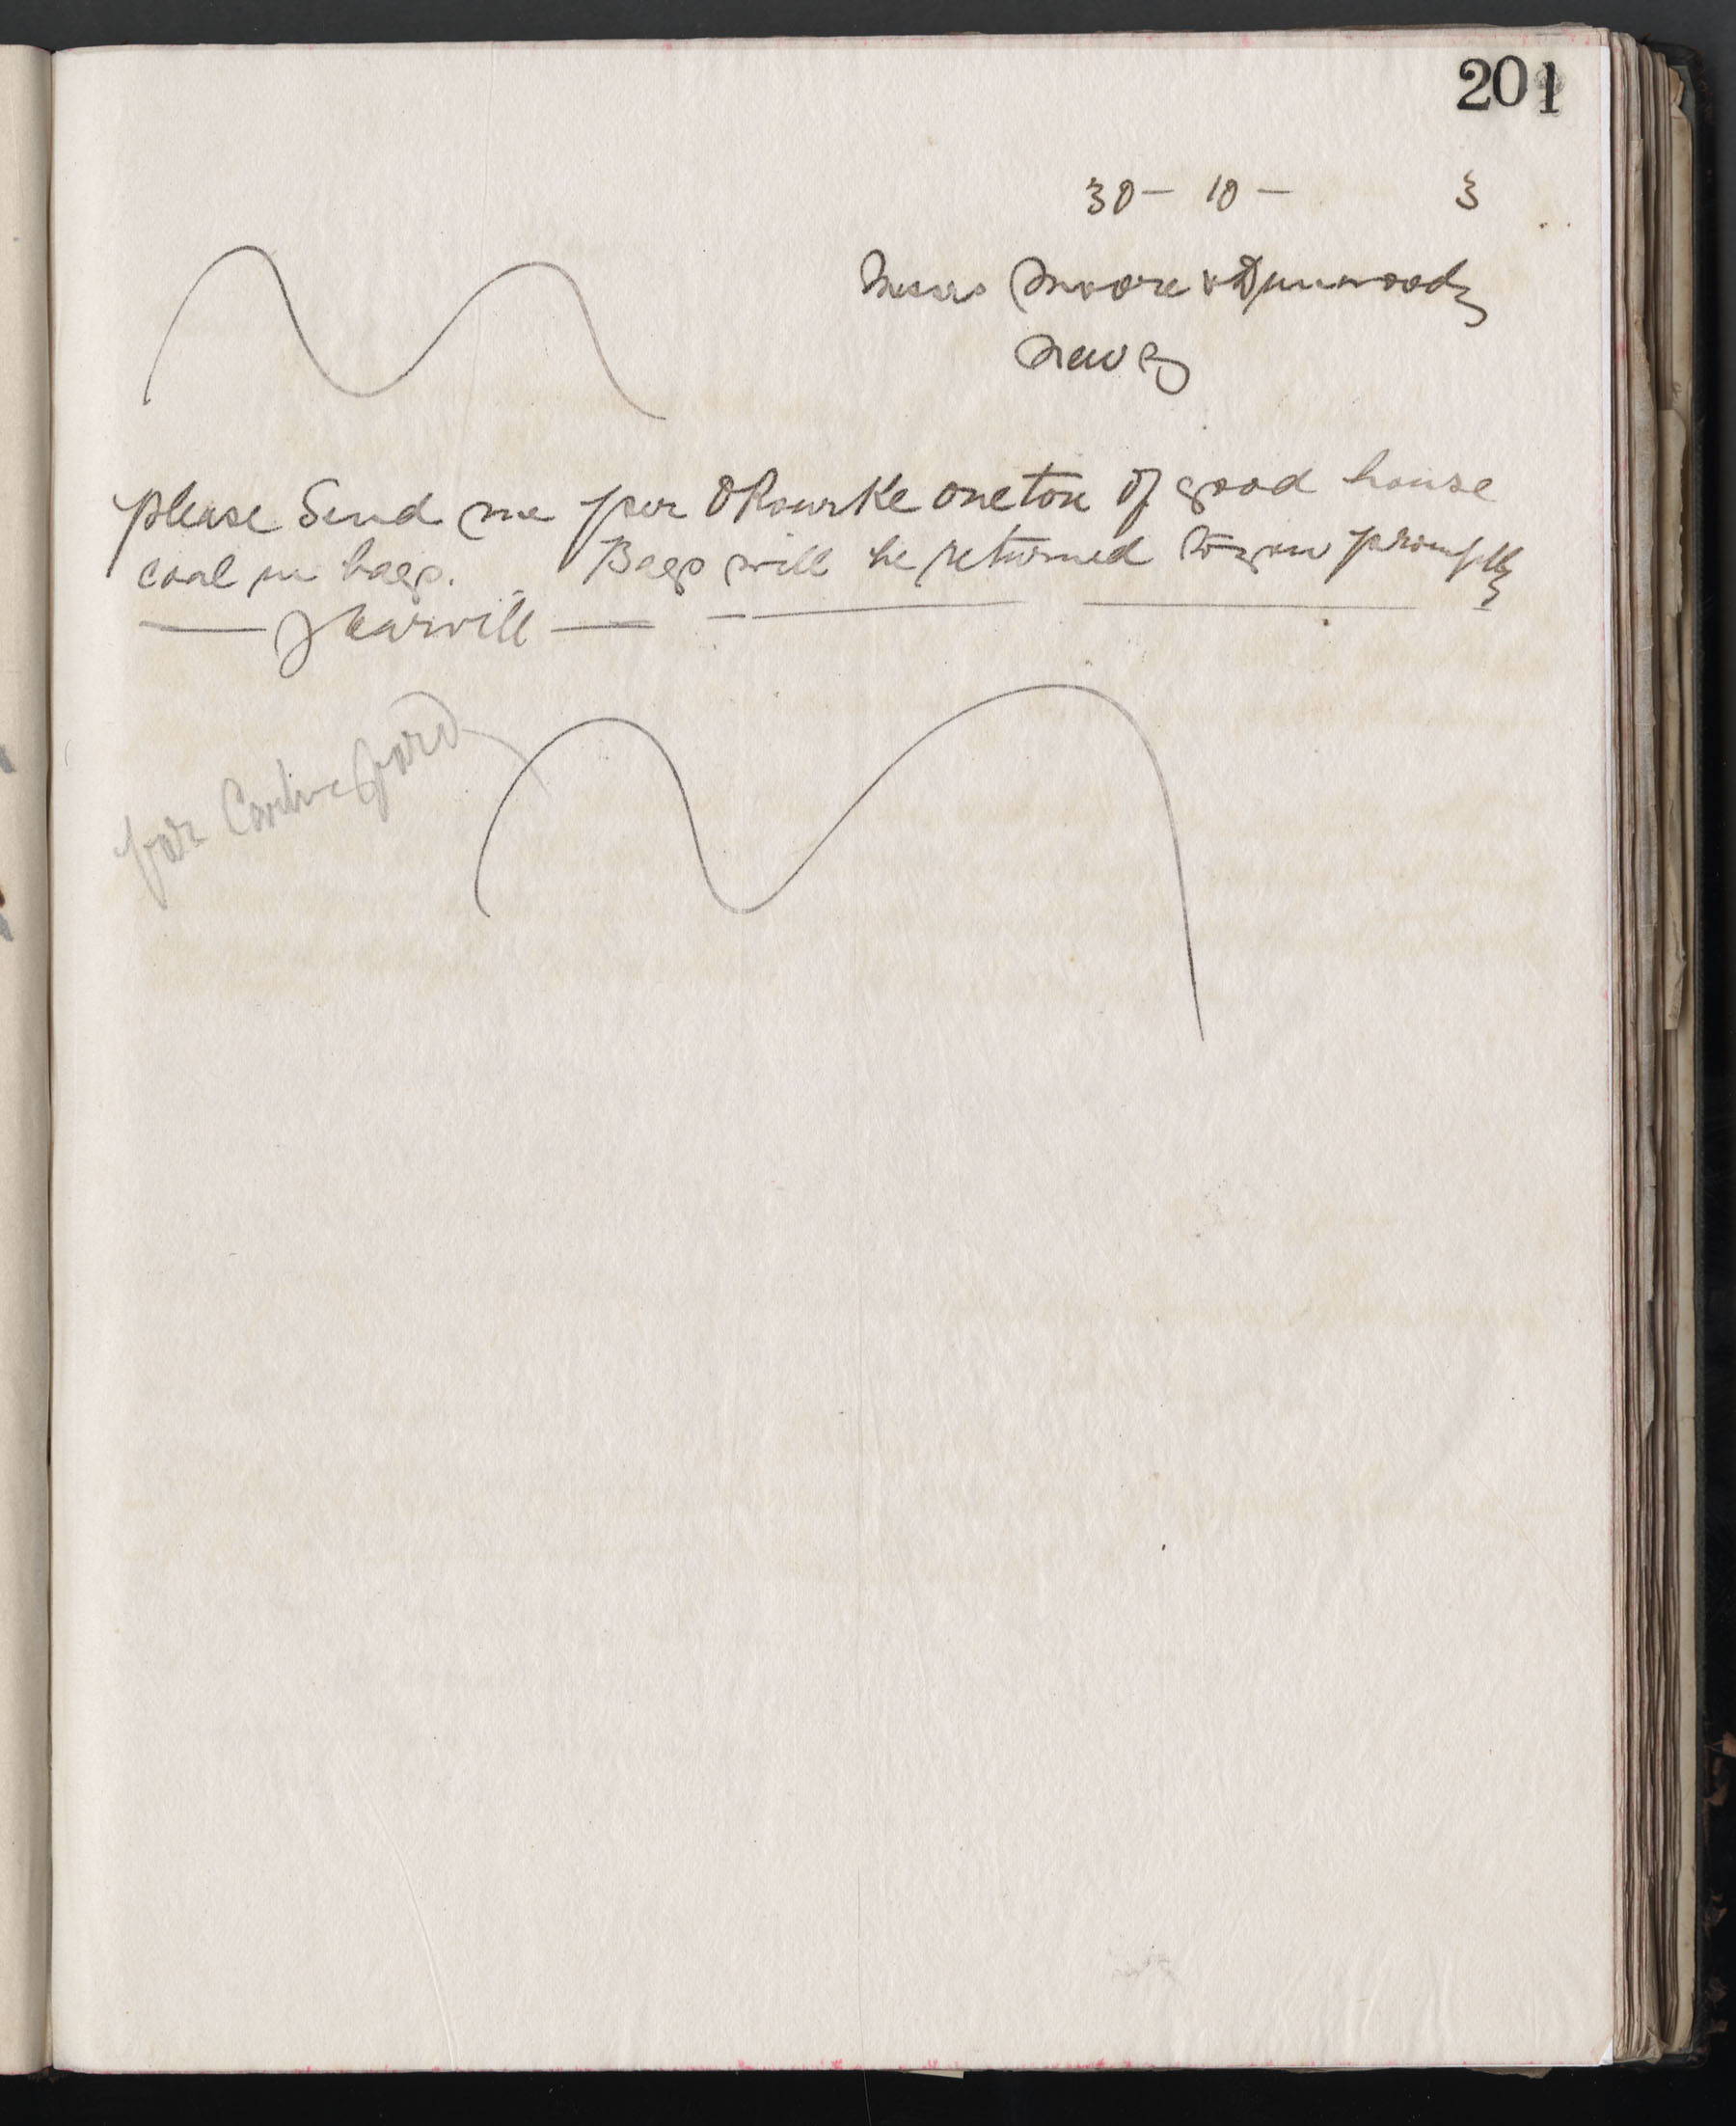 201
30 - 10 - 3
Messrs Moore & Dunwoody
Newry
please Send me per ORourke one ton of good house
coal in bags. Bags will be returned to you promptly
J Carvill
for